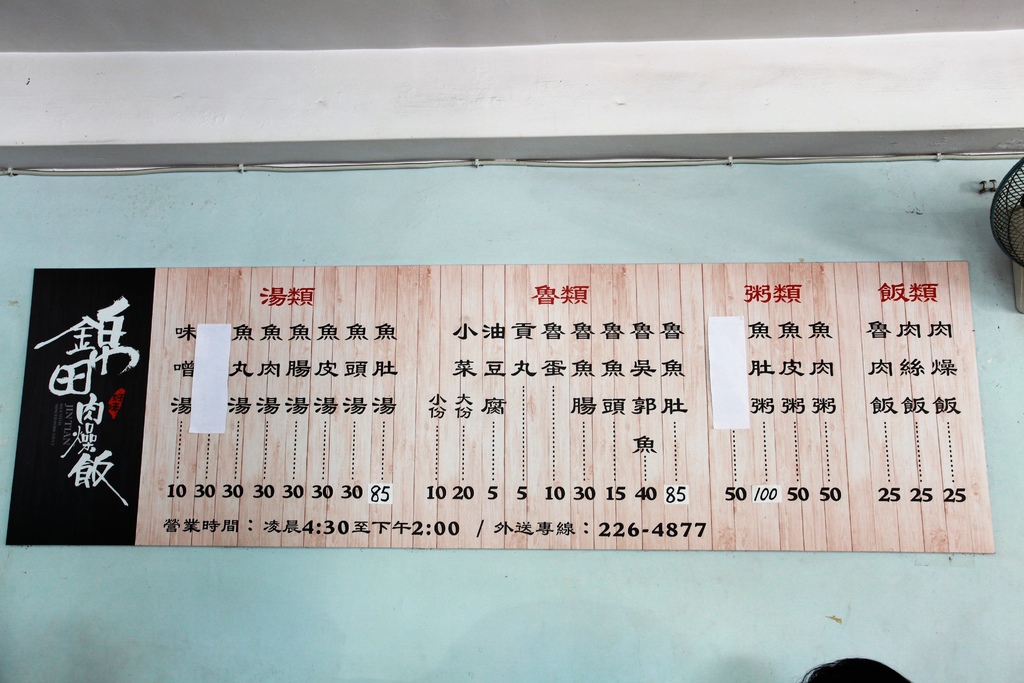 錦田肉燥飯
JIN TIAN
飯類
肉燥飯 25
肉絲飯 25
魯肉飯 25
粥類
魚肉粥 50
魚皮粥 50
魚肚粥 100
50
魯類
魯魚肚 85
魯吳郭魚 40
魯魚頭 15
魯魚腸 30
魯蛋 10
貢丸 5
油豆腐 5
小菜
大份 20
小份 10
湯類
魚肚湯 85
魚頭湯 30
魚皮湯 30
魚腸湯 30
魚肉湯 30
魚丸湯 30
30
味噌湯 10
營業時間：凌晨4:30至下午2:00 / 外送專線：226-4877